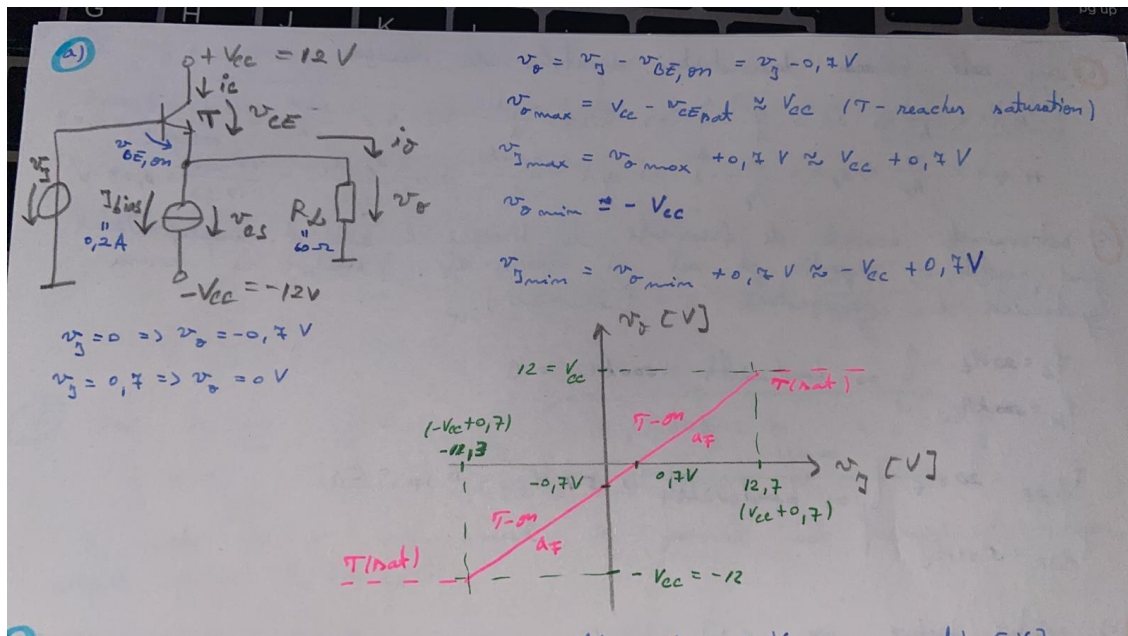 a)
+ Vcc = 12 V
ic
T
vCE
vBE,on
vI
Ibias
"
0,2A
vCS
RL
"
60Ω
io
vo
-Vcc = -12V
vI = 0 => vo = -0,7 V
vI = 0,7 => vo = 0 V
vo = vI - vBE,on = vI - 0,7 V
vo max = vcc - vCEsat ≈ Vcc (T - reaches saturation)
vI max = vo max + 0,7 V ≈ Vcc + 0,7 V
vo min ≅ - Vcc
vI min = vo min + 0,7 V ≈ -Vcc + 0,7V
vo [V]
12 = Vcc
T(sat)
T-on
aF
(-Vcc+0,7)
-0,7V
0,7V
12,7
(Vcc+0,7)
vI [V]
T-on
aF
T(sat)
- Vcc = -12
G
H
J
K
L
pg up